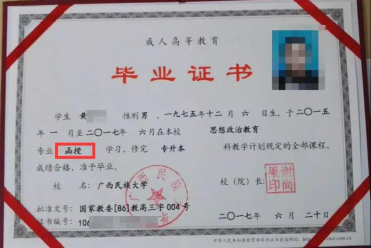 成人高等教育
毕业证书
学生 黄 性别 男 ，一九七五年十二月 六 日生，于二〇一五
年 一 月至二〇一七年 六月在本校 思想政治教育
专业 函授 学习，修完 专升本 科教学计划规定的全部课程，
成绩合格，准予毕业。
校 名：广西民族大学 校（院）长：
批准文号：国家教委[86]教高三字004号
证书编号：106 二〇一七年 六 月 二十 日